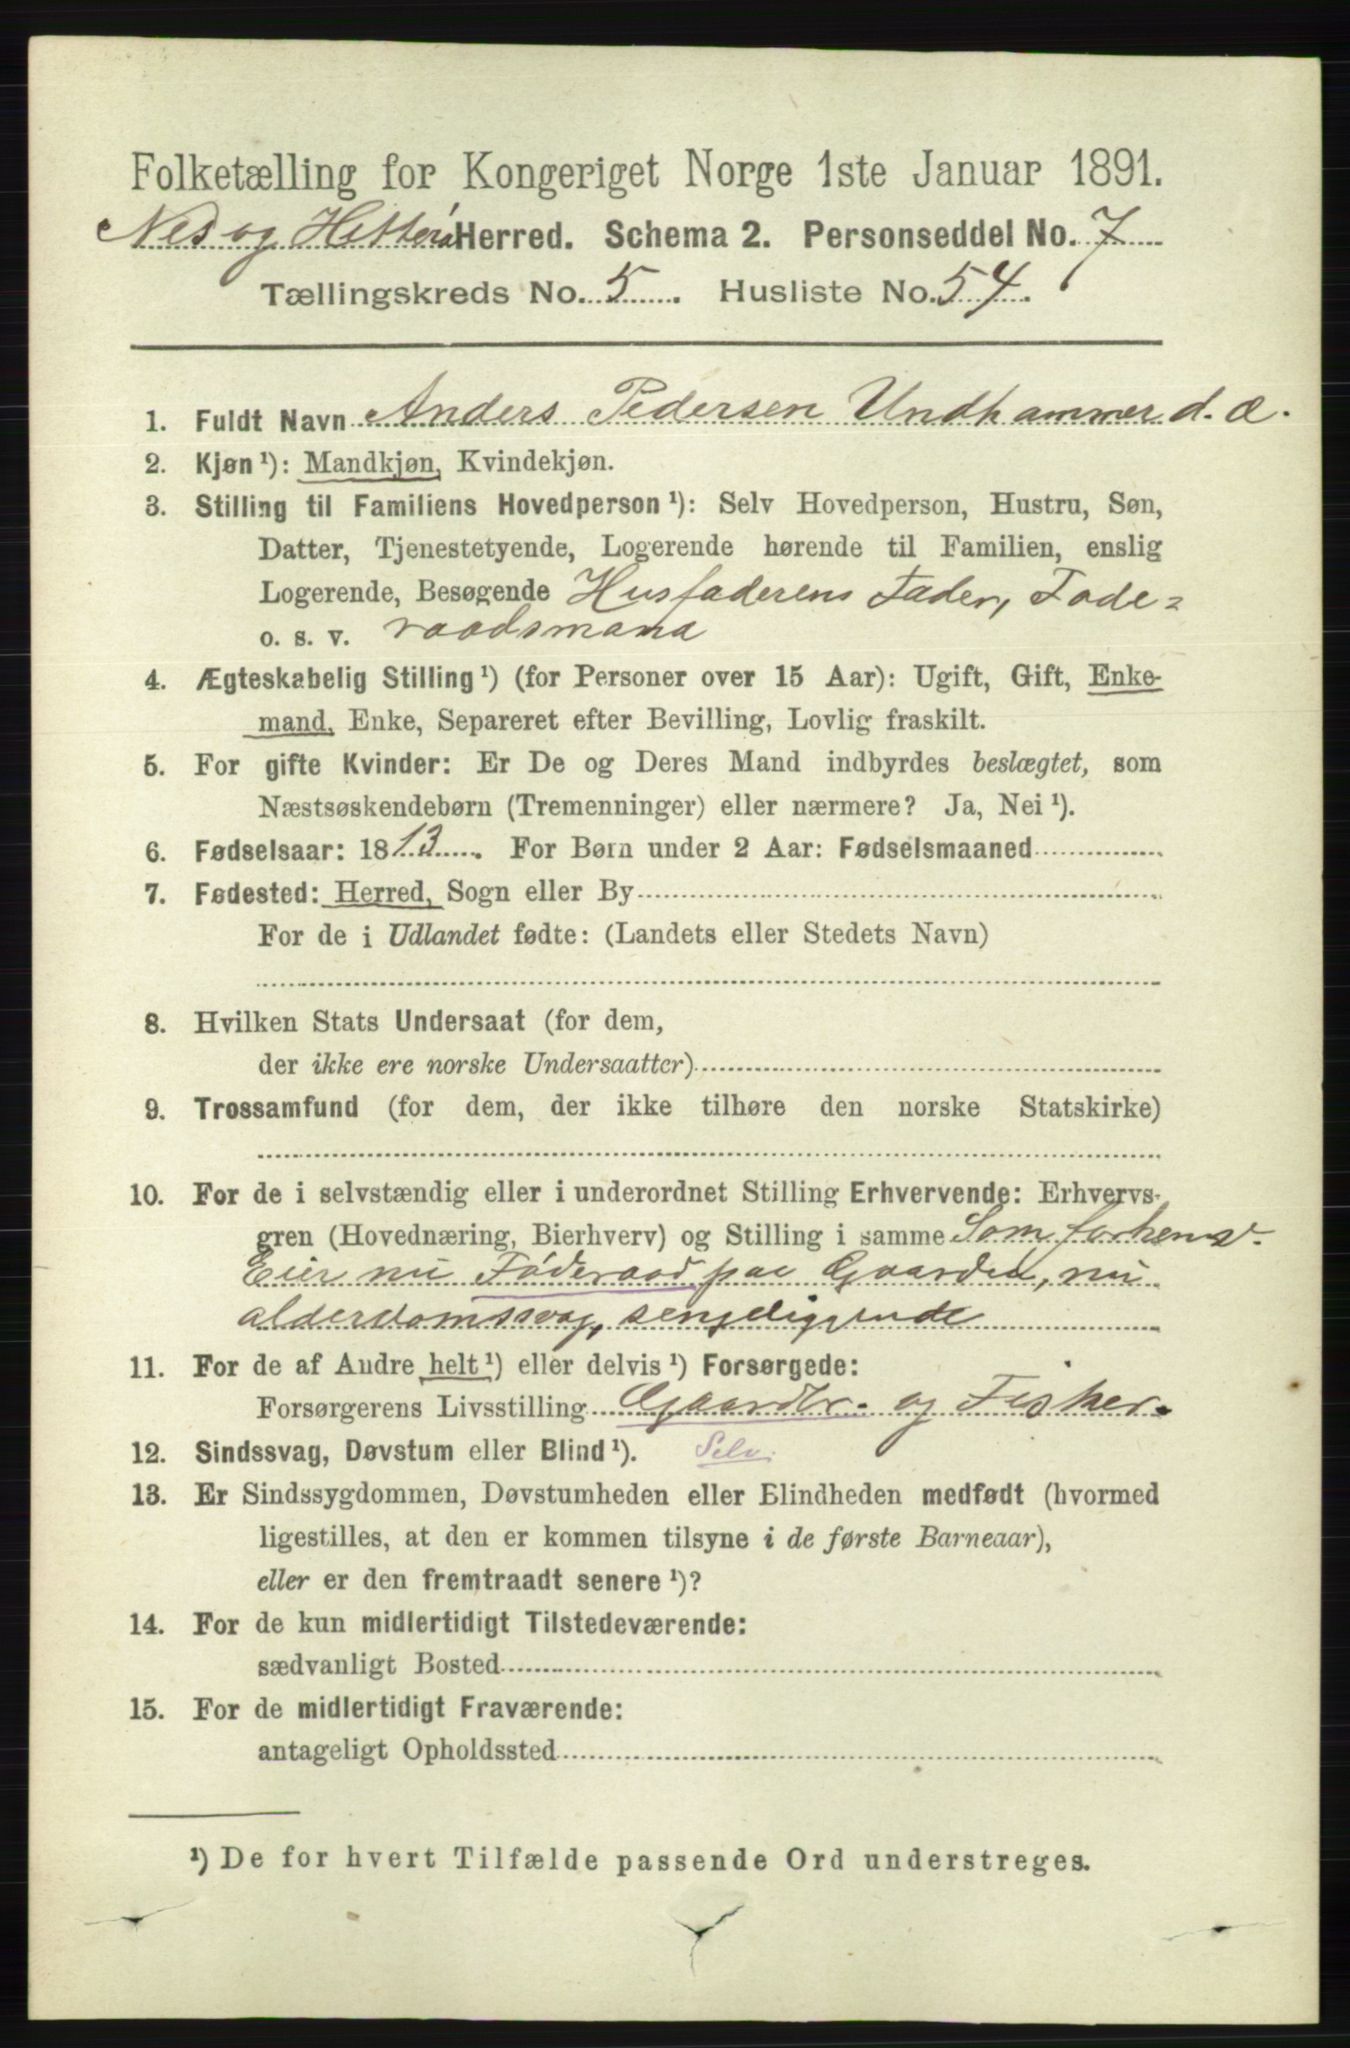 Folketælling for Kongeriget Norge 1ste Januar 1891.
Nes og Hitterø Herred. Schema 2. Personseddel No. 7
Tællingskreds No. 5. Husliste No. 54.
1. Fuldt Navn Anders Pedersen Undhammer d. æ.
2. Kjøn ¹): Mandkjøn, Kvindekjøn.
3. Stilling til Familiens Hovedperson ¹): Selv Hovedperson, Hustru, Søn,
Datter, Tjenestetyende, Logerende hørende til Familien, enslig
Logerende, Besøgende Husfaderens Fader, Føde=
o. s. v. raadsmand
4. Ægteskabelig Stilling ¹) (for Personer over 15 Aar): Ugift, Gift, Enke-
mand, Enke, Separeret efter Bevilling, Lovlig fraskilt.
5. For gifte Kvinder: Er De og Deres Mand indbyrdes beslægtet, som
Næstsøskendebørn (Tremenninger) eller nærmere? Ja, Nei ¹).
6. Fødselsaar: 1813. For Børn under 2 Aar: Fødselsmaaned
7. Fødested: Herred, Sogn eller By
For de i Udlandet fødte: (Landets eller Stedets Navn)
8. Hvilken Stats Undersaat (for dem,
der ikke ere norske Undersaatter)
9. Trossamfund (for dem, der ikke tilhøre den norske Statskirke)
10. For de i selvstændig eller i underordnet Stilling Erhvervende: Erhvervs-
gren (Hovednæring, Bierhverv) og Stilling i samme Som forhenv.
Eier nu Føderaad paa Gaarden, nu
alderdomssvag, sengeliggende
11. For de af Andre helt ¹) eller delvis ¹) Forsørgede:
Forsørgerens Livsstilling Gaardbr. og Fisker.
12. Sindssvag, Døvstum eller Blind ¹). Selv.
13. Er Sindssygdommen, Døvstumheden eller Blindheden medfødt (hvormed
ligestilles, at den er kommen tilsyne i de første Barneaar),
eller er den fremtraadt senere ¹)?
14. For de kun midlertidigt Tilstedeværende:
sædvanligt Bosted
15. For de midlertidigt Fraværende:
antageligt Opholdssted
¹) De for hvert Tilfælde passende Ord understreges.